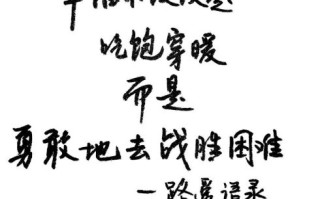 吃饱穿暖
而是
勇敢地去战胜困难
一路遥语录